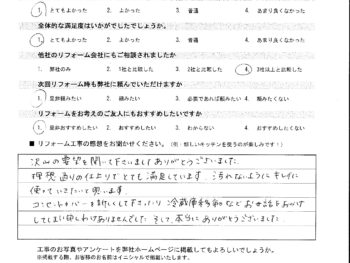 1. とてもよかった 2. よかった 3. 普通 4. あまり良くなかった
全体的な満足度はいかがでしたでしょうか。
1. とてもよかった 2. よかった 3. 普通 4. あまり良くなかった
他社のリフォーム会社にもご相談されましたか
1. 弊社のみ 2. 1社と比較した 3. 2社と比較した 4. 3社以上と比較した
次回リフォーム時も弊社に頼んでいただけますか
1. 是非頼みたい 2. 頼みたい 3. 必要であれば頼みたい 4. 頼みたくない
リフォームをお考えのご友人にもおすすめしたいですか
1. 是非おすすめしたい 2. おすすめしたい 3. わからない 4. おすすめしたくない
■ リフォーム工事の感想をお聞かせください。(例:新しいキッチンを使うのが楽しみです!)
沢山の要望を聞いて下さいまして ありがとうございました。
理想通りの仕上りでとても満足しています。汚れないようにキレイに
使っていきたいと思います。
コンセントカバーを新しくして下さったり 冷蔵庫移動などお世話をおかけ
してしまい申しわけありませんでした。そして、本当にありがとうございました。
工事のお写真やアンケートを弊社ホームページに掲載してもよろしいでしょうか。
※掲載する際、お客様のお名前はイニシャルで掲載いたします。